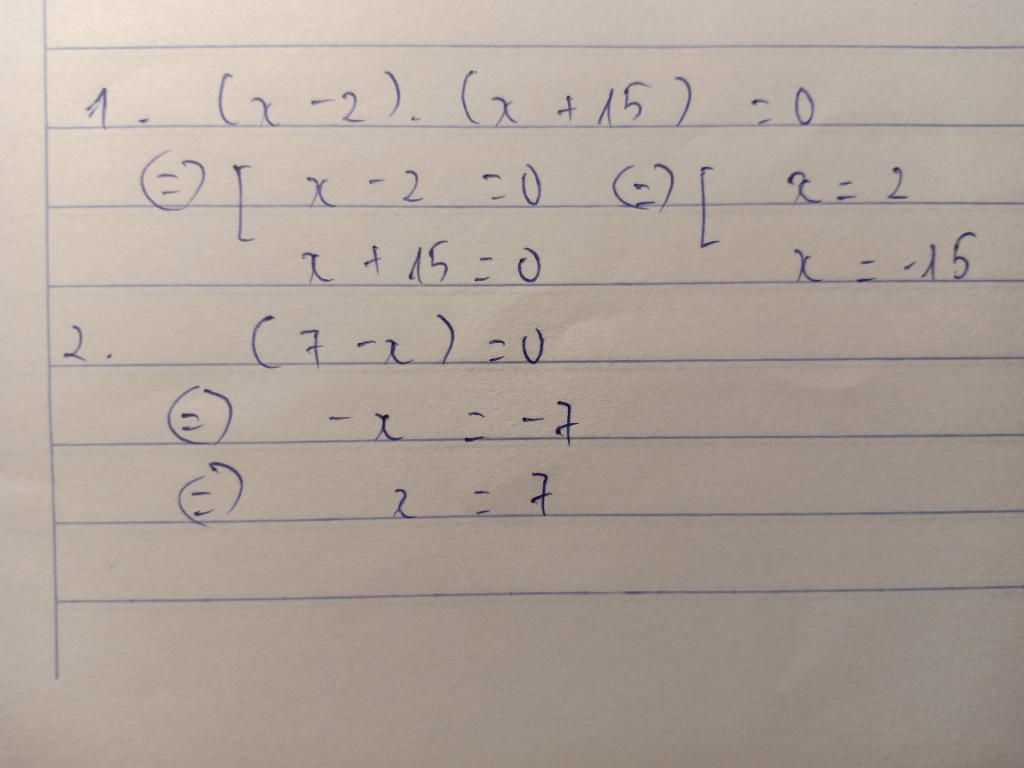 1. (x - 2). (x + 15) = 0
⇔ [ x - 2 = 0 ⇔ [ x = 2
x + 15 = 0 x = -15
2. (7 - x) = 0
⇔ -x = -7
⇔ x = 7